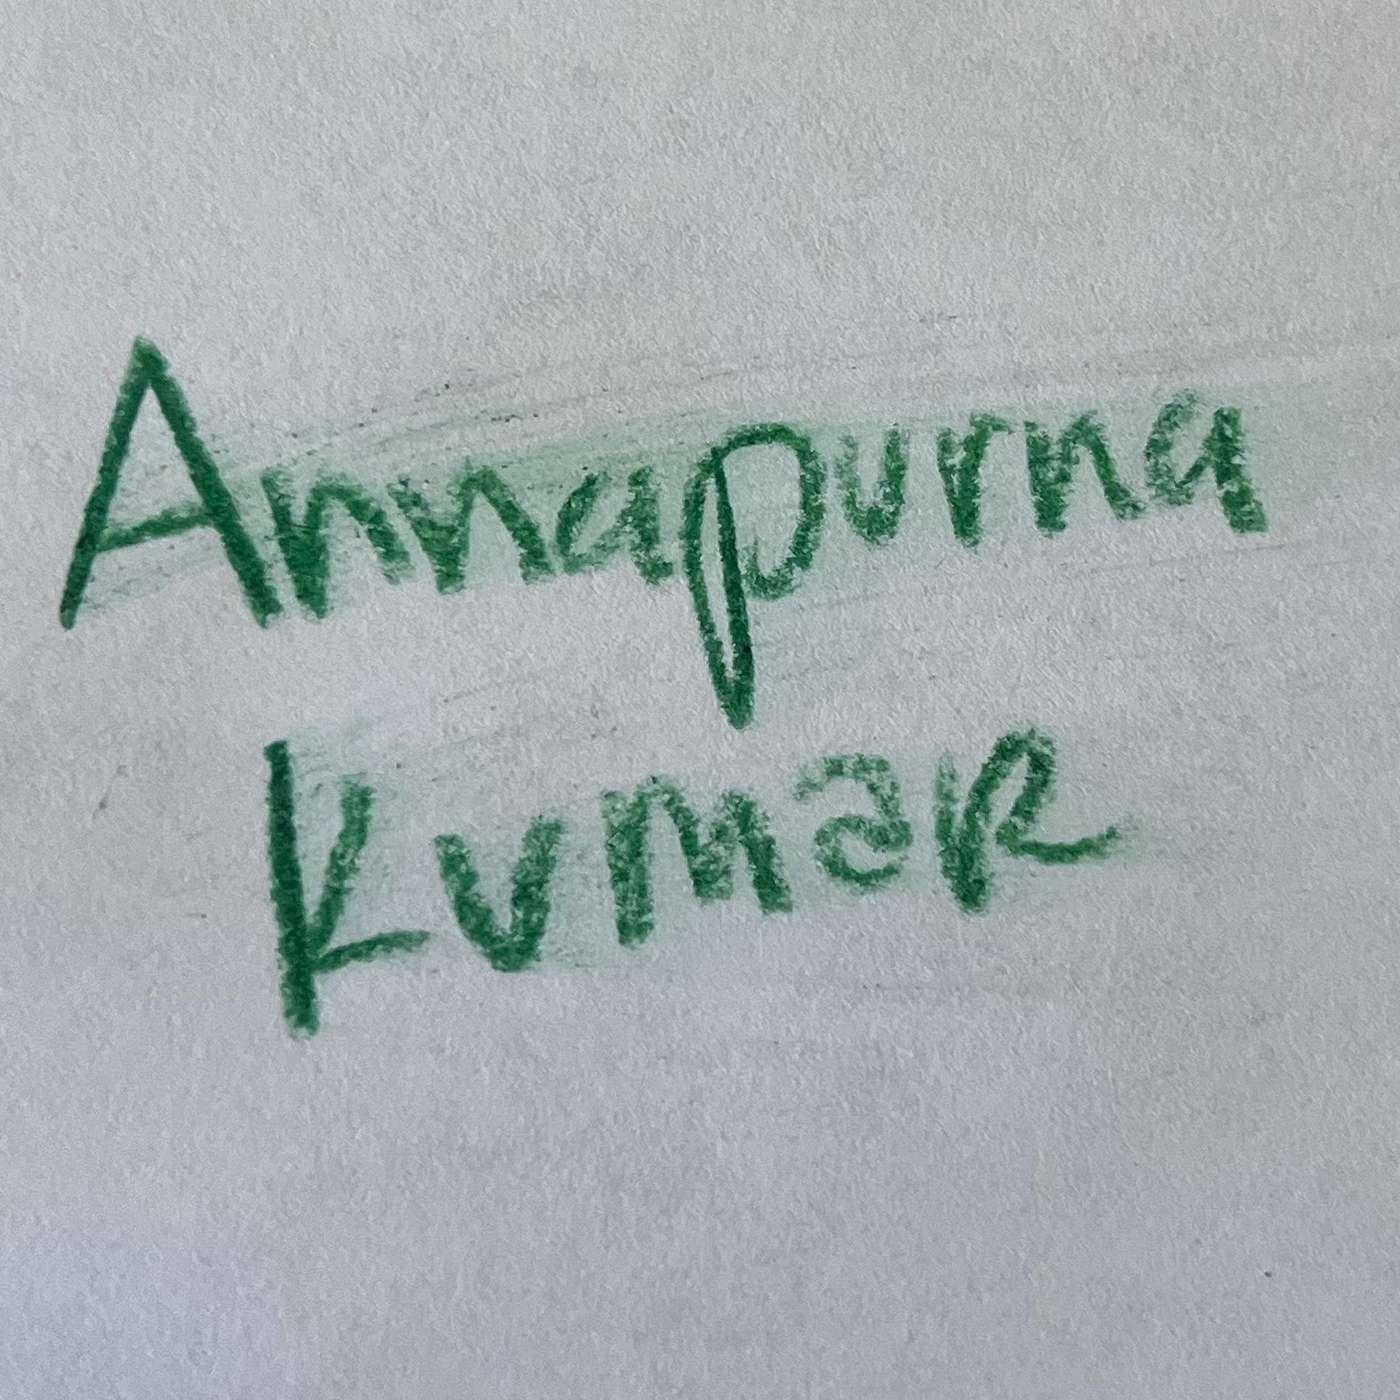 Annapurna
Kumar